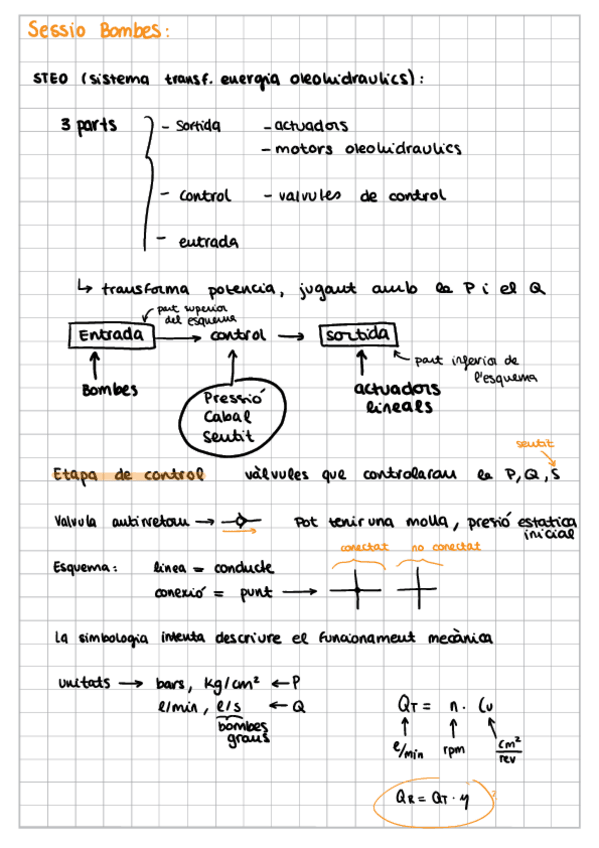 Sessio Bombes:
STEO (sistema transf. energia oleohidraulics):
3 parts - Sortida - actuadors
- motors oleohidraulics
- Control - valvules de control
- entrada
↳ transforma potencia, jugant amb la P i el Q
part superior
del esquema
Entrada → control → sortida
part inferior de
l'esquema
Bombes
Pressió
Cabal
Sentit
actuadors
lineals
sentit
Etapa de control vàlvules que controlaran la P, Q, S
Valvula antirretorn → Pot tenir una molla, presió estatica
inicial
conectat no conectat
Esquema: linea = conducte
conexió = punt →
La simbologia intenta descriure el funcionament mecànica
unitats → bars, kg/cm² ← P
l/min, l/s ← Q
bombes
grans
QT = n · Cu
l/min rpm cm²/rev
QR = QT · η ?